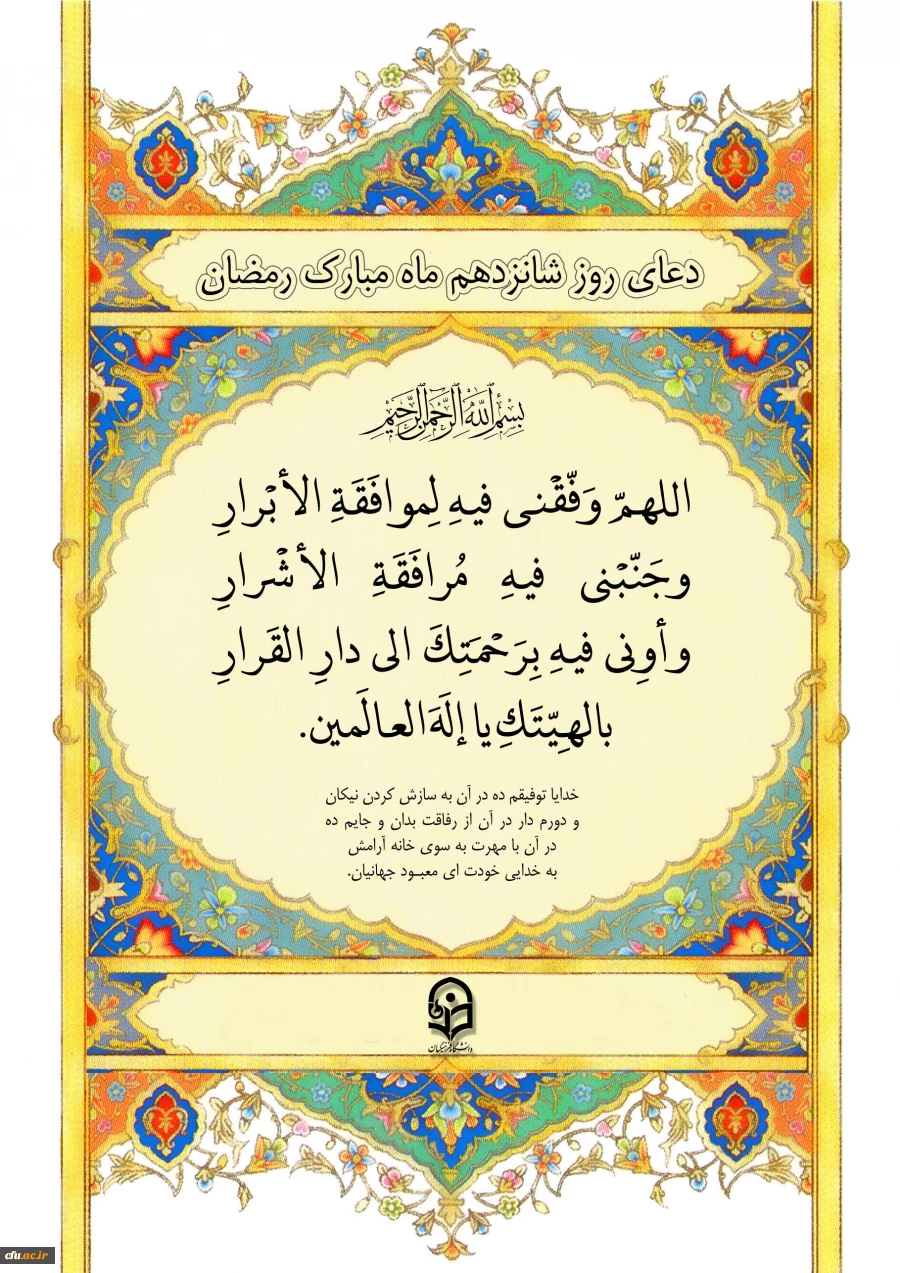 دعای روز شانزدهم ماه مبارک رمضان
بِسْمِ اللَّهِ الرَّحْمَنِ الرَّحِيمِ
اللهمّ وَفّقْنی فیهِ لِموافَقَةِ الأبْرارِ
وجَنّبْنی فیهِ مُرافَقَةِ الأشْرارِ
وأوِنی فیهِ بِرَحْمَتِكَ الی دارِ القَرارِ
بالهِیّتَكِ یا إلَهَ العالَمین.
خدایا توفیقم ده در آن به سازش کردن نیکان
و دورم دار در آن از رفاقت بدان و جایم ده
در آن با مهرت به سوی خانه آرامش
به خدایی خودت ای معبـود جهانیان.
دانشگاه فرهنگیان
cfu.ac.ir